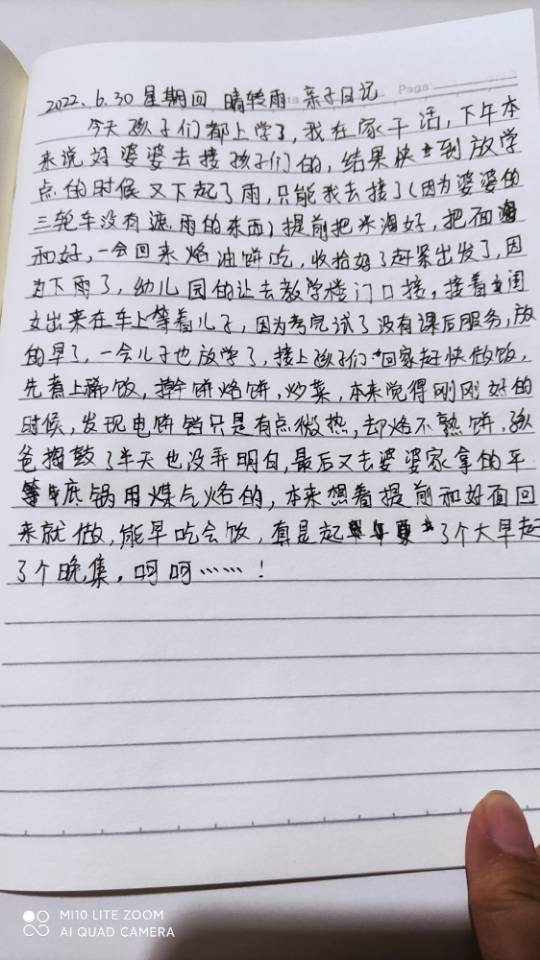 Page
2022.6.30 星期四 晴转雨 亲子日记
今天孩子们都上学了,我在家干活,下午本
来说好婆婆去接孩子们的,结果快到放学
点的时候又下起了雨,只能我去接了(因为婆婆的
三轮车没有遮雨的东西)提前把米淘好,把面
和好,一会回来烙油饼吃,收拾好了赶紧出发了,因
为下雨了,幼儿园的让去教学楼门口接,接着闺
女出来在车上等着儿子,因为考完试了没有课后服务,放
的早了,一会儿子也放学了,接上孩子们回家赶快做饭,
先煮上稀饭,擀饼烙饼,炒菜,本来觉得刚刚好的
时候,发现电饼铛只是有点微热,却烙不熟饼,孩
爸捣鼓了半天也没弄明白,最后又去婆婆家拿的平
底锅用煤气烙的,本来想着提前和好面回
来就做,能早吃会饭,真是起了个大早赶
了个晚集。呵呵……!
MI 10 LITE ZOOM
AI QUAD CAMERA